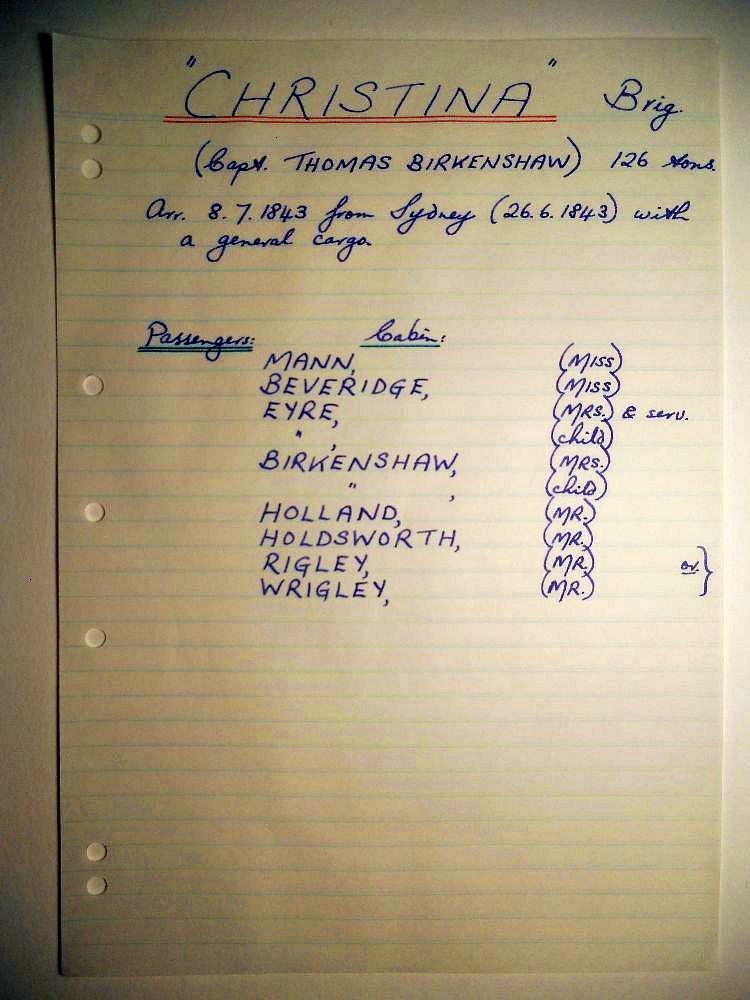 "CHRISTINA" Brig.
(Capt. THOMAS BIRKENSHAW) 126 tons.
Arr. 8.7.1843 from Sydney (26.6.1843) with
a general cargo.
Passengers: Cabin:
MANN, (MISS)
BEVERIDGE, (MISS)
EYRE, (MRS.) & serv.
" , (child)
BIRKENSHAW, (MRS.)
" , (child)
HOLLAND, (MR.)
HOLDSWORTH, (MR.)
RIGLEY, (MR.) or }
WRIGLEY, (MR.)